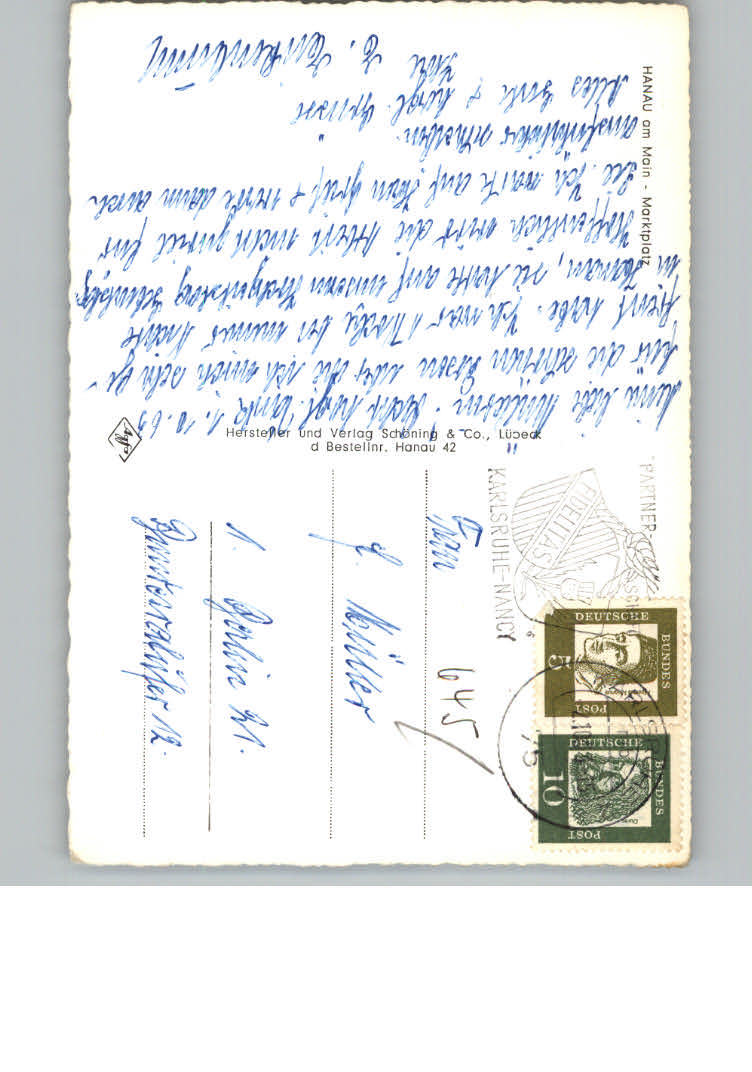 HANAU am Main - Marktplatz
1.10.63
Meine liebe Müllerin. Sehr herzl. Dank
für die schönen über die ich mich sehr ge-
freut habe. Ich war 1 Woche bei meiner Nichte
in Hanau, sie hatte auf unserm
Hoffentlich wird die Arbeit nicht zuviel für
Sie. Ich warte auf Ihren Gruß & werde dann auch
ausführlicher schreiben.
Alles Gute & herzl. Grüsse
Ihre E.
Hersteller und Verlag Schöning & Co., Lübeck
d Bestellnr. Hanau 42
Agfa
PARTNER-
FIDELITAS
KARLSRUHE-NANCY
DEUTSCHE
BUNDES
POST
5
DEUTSCHE
BUNDES
POST
10
Dürer
Frau
J. Müller
1. Berlin 21.
Bundesratufer 12.
645